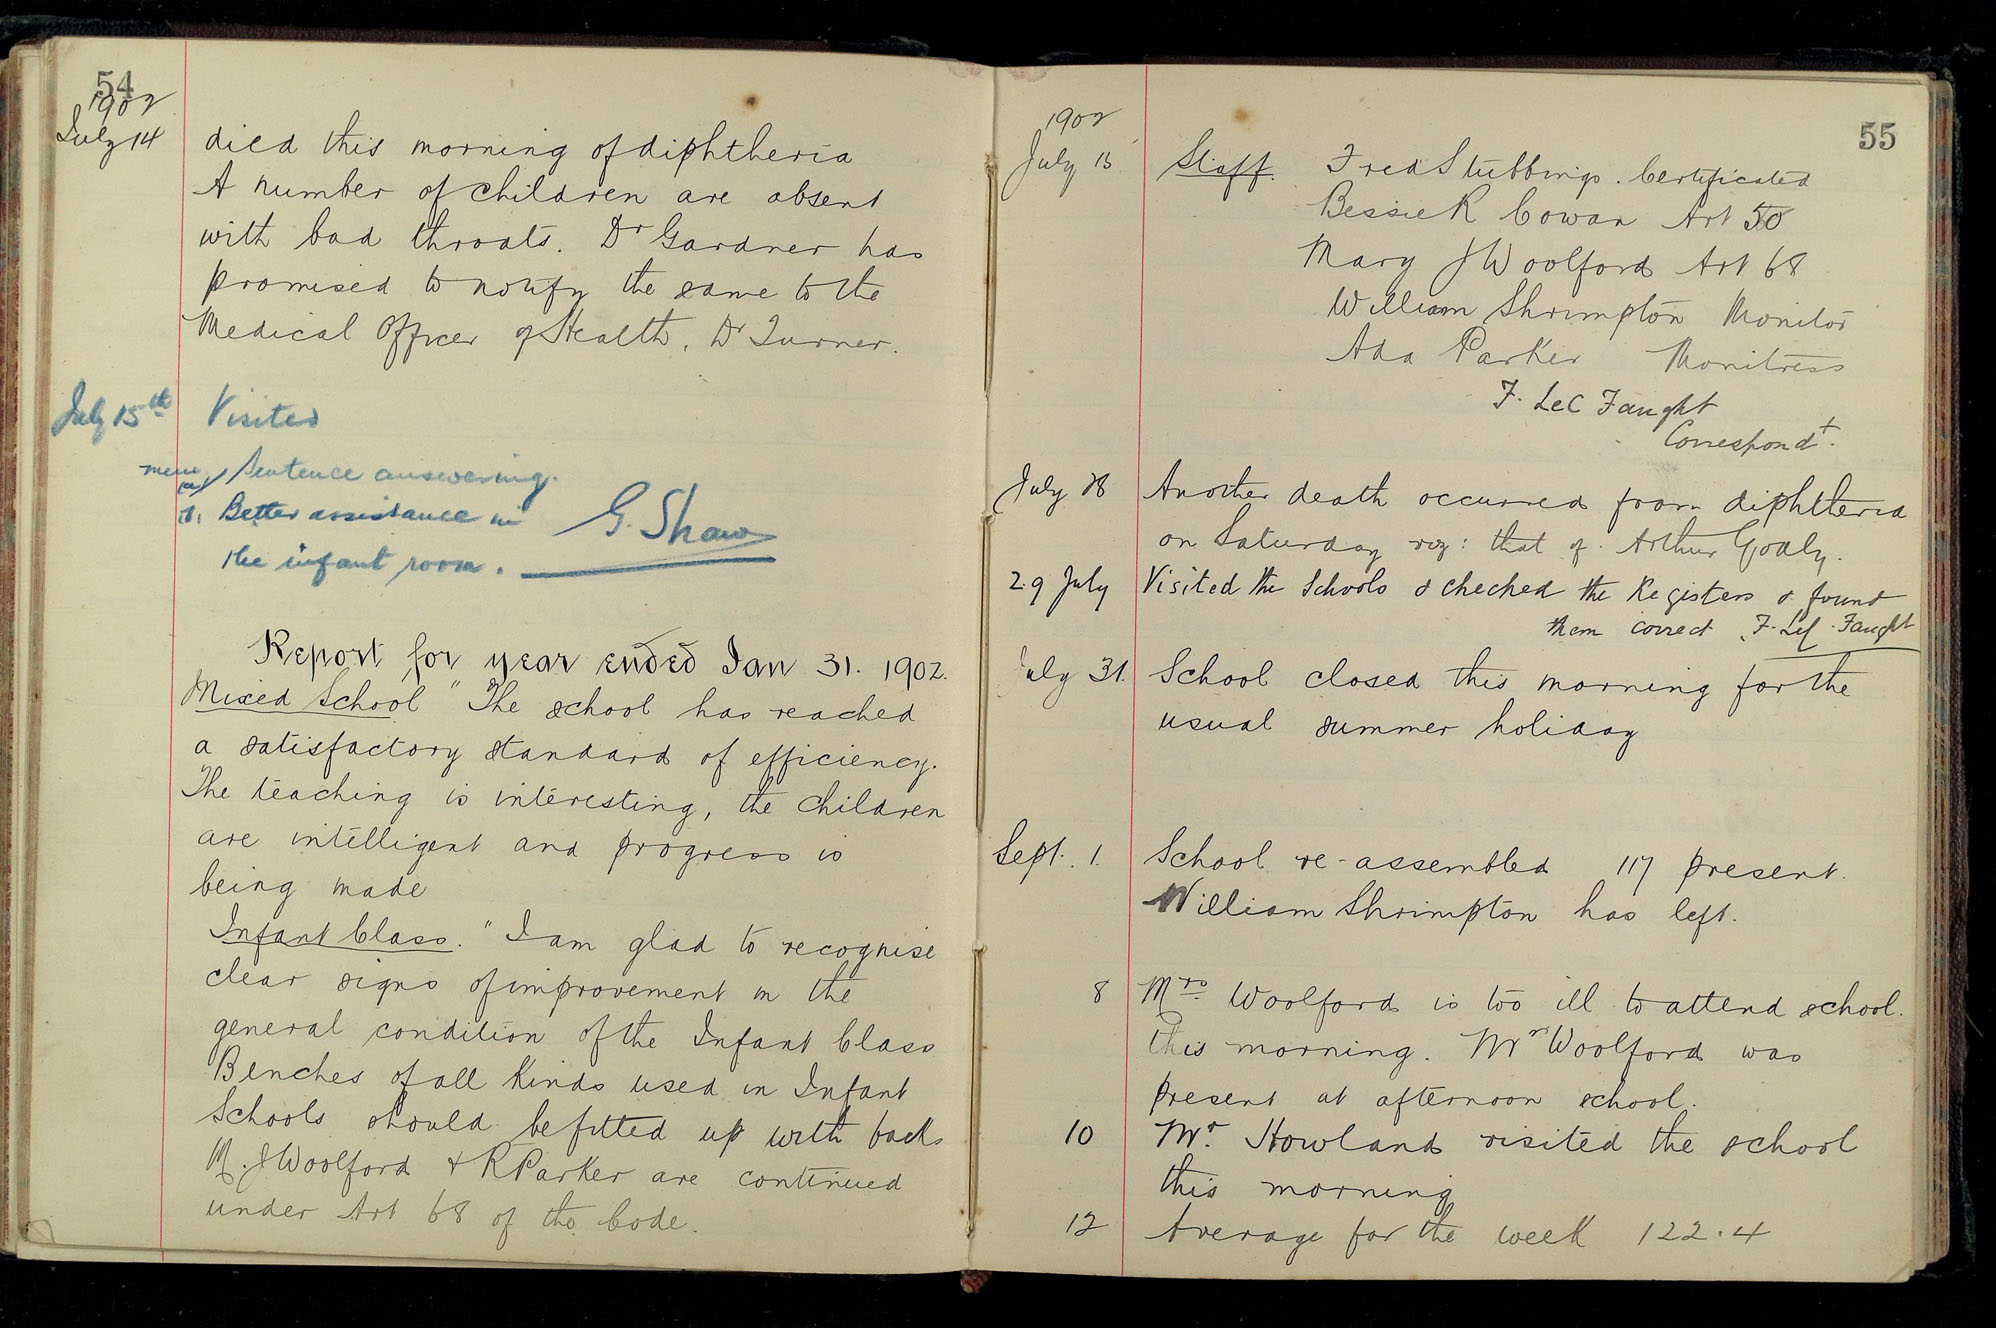 54
1902
July 14 died this morning of diphtheria
A number of children are absent
with bad throats. Dr Gardner has
promised to notify the same to the
Medical Officer of Health, Dr Turner.
July 15th Visited
mem (a) Sentence answering.
Better assistance in
the infant room. G. Shaw
Report for year ended Jan 31. 1902.
Mixed School "The school has reached
a satisfactory standard of efficiency.
The teaching is interesting, the children
are intelligent and progress is
being made
Infant Class. "I am glad to recognise
clear signs of improvement in the
general condition of the Infant Class
Benches of all kinds used in Infant
Schools should be fitted up with backs
M. J Woolford & R Parker are continued
under Art 68 of the Code.
55
1902
July 15 Staff. Fred Stubbings. Certificated
Bessie R Cowan Art 50
Mary J Woolford Art 68
William Shrimpton Monitor
Ada Parker Monitress
F. LeC Faught
Correspondt.
July 28 Another death occurred from diphtheria
on Saturday viz: that of Arthur
29 July Visited the Schools & checked the Registers & found
them correct F. LeC Faught
July 31. School closed this morning for the
usual summer holiday
Sept. 1. School re-assembled 117 present.
William Shrimpton has left.
8 Mrs Woolford is too ill to attend school.
this morning. Mrs Woolford was
present at afternoon school.
10 Mr. Howland visited the school
this morning
12 Average for the week 122.4